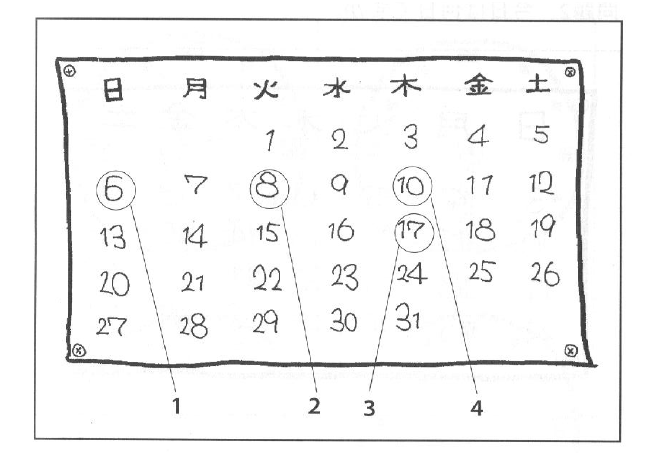 日 月 火 水 木 金 土
1 2 3 4 5
6 7 8 9 10 11 12
13 14 15 16 17 18 19
20 21 22 23 24 25 26
27 28 29 30 31
1 2 3 4